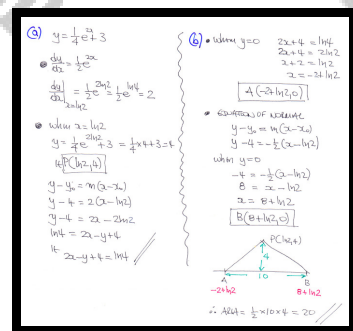 (a) y = 1/4 e^2x + 3
• dy/dx = 1/2 e^2x
dy/dx|x=ln2 = 1/2 e^2ln2 = 1/2 e^ln4 = 2
• when x = ln2
y = 1/4 e^2ln2 + 3 = 1/4 × 4 + 3 = 4
IE P(ln2,4)
y - y₀ = m(x - x₀)
y - 4 = 2(x - ln2)
y - 4 = 2x - 2ln2
ln4 = 2x - y + 4
IE
2x - y + 4 = ln4
(b) • when y=0 2x + 4 = ln4
2x + 4 = 2ln2
x + 2 = ln2
x = -2 + ln2
A(-2+ln2,0)
• EQUATION OF NORMAL
y - y₀ = m(x - x₀)
y - 4 = -1/2(x - ln2)
when y=0
-4 = -1/2(x - ln2)
8 = x - ln2
x = 8 + ln2
B(8+ln2,0)
P(ln2,4)
4
A 10 B
-2+ln2 8+ln2
∴ AREA = 1/2 × 10 × 4 = 20